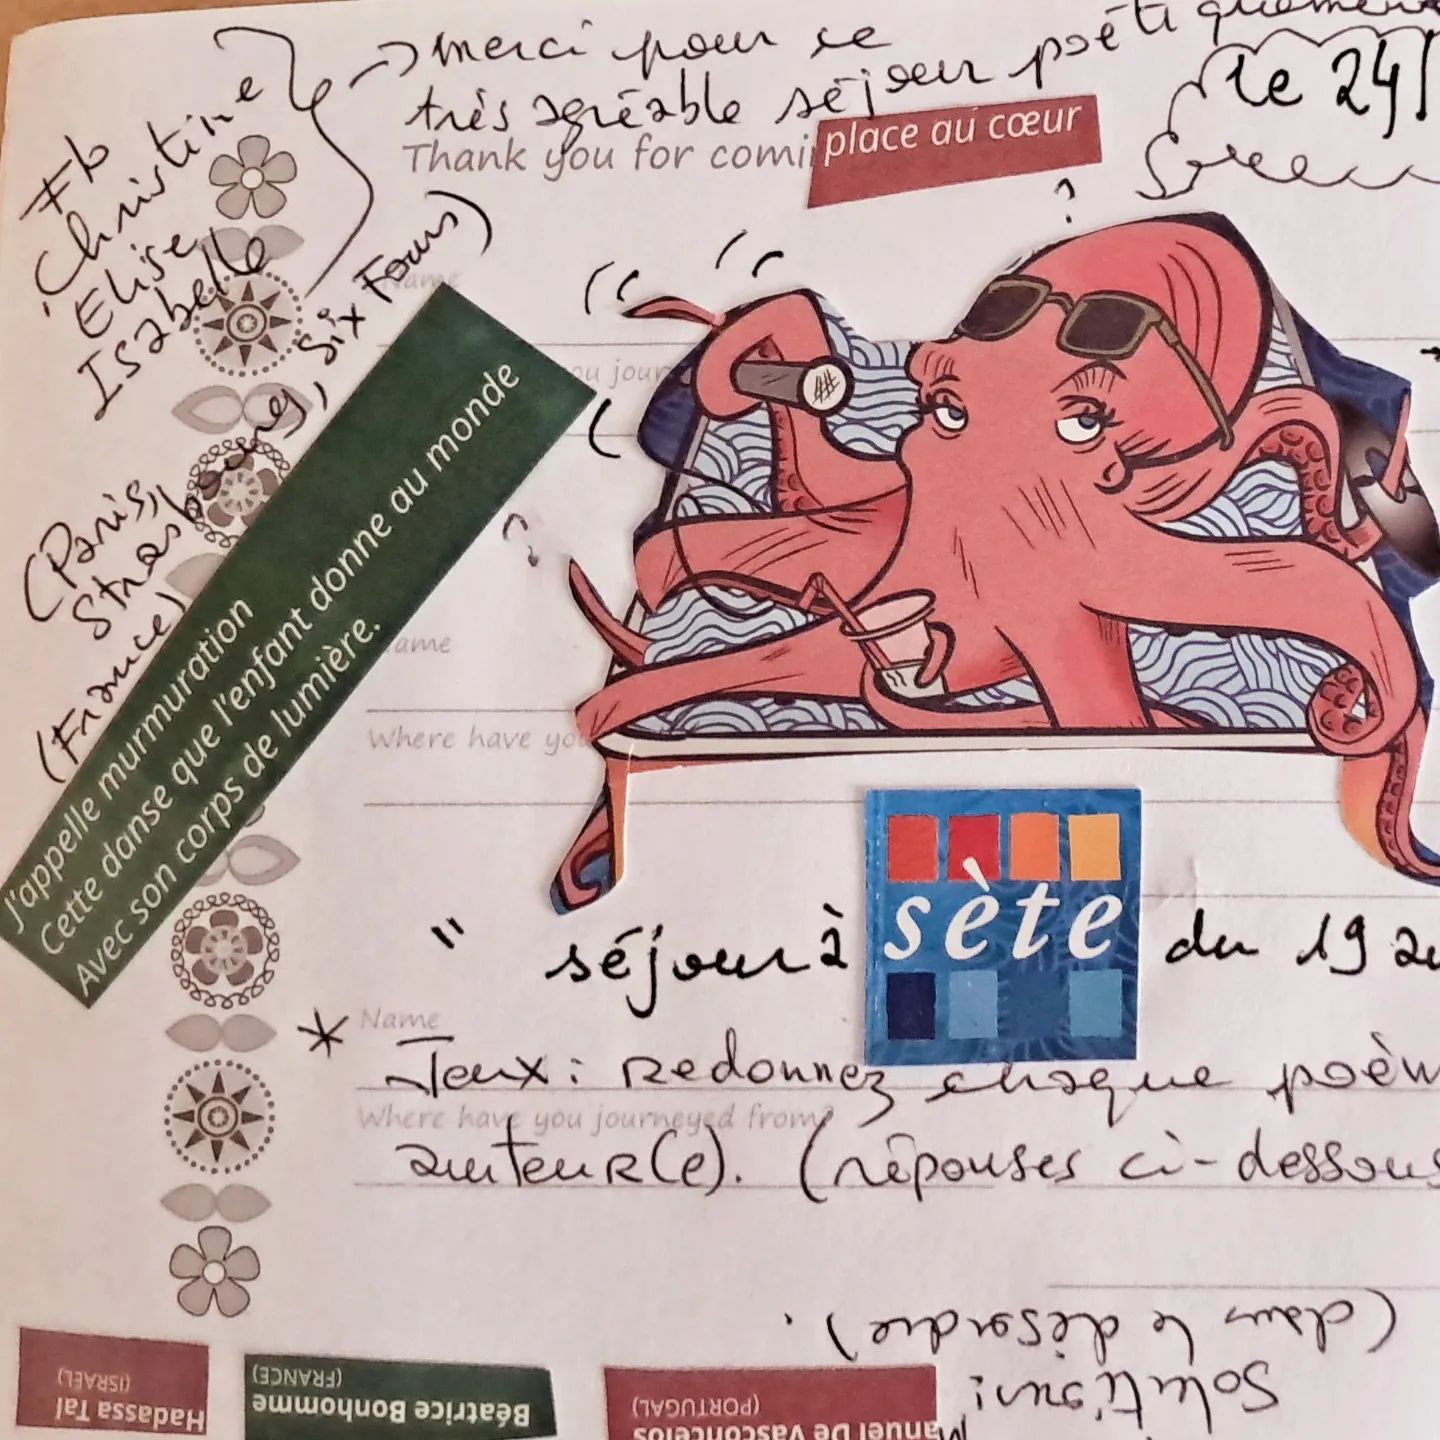 → merci pour ce
très agréable séjour poétiquement
le 24
Thank you for comi
place au cœur
Christine
Elise
Isabelle
(Paris,
Strasbourg, Six Fours)
(France)
Name
ou jour
?
?
J'appelle murmuration
Cette danse que l'enfant donne au monde
Avec son corps de lumière.
ame
Where have you
" séjour à sète du 19 au
Name
* Jeux : Redonnez chaque poèm
Where have you journeyed from?
auteur(e). (réponses ci-dessous
(dans le désordre).
Solutions :
Hadassa Tal
(ISRAEL)
Béatrice Bonhomme
(FRANCE)
Manuel De Vasconcelos
(PORTUGAL)